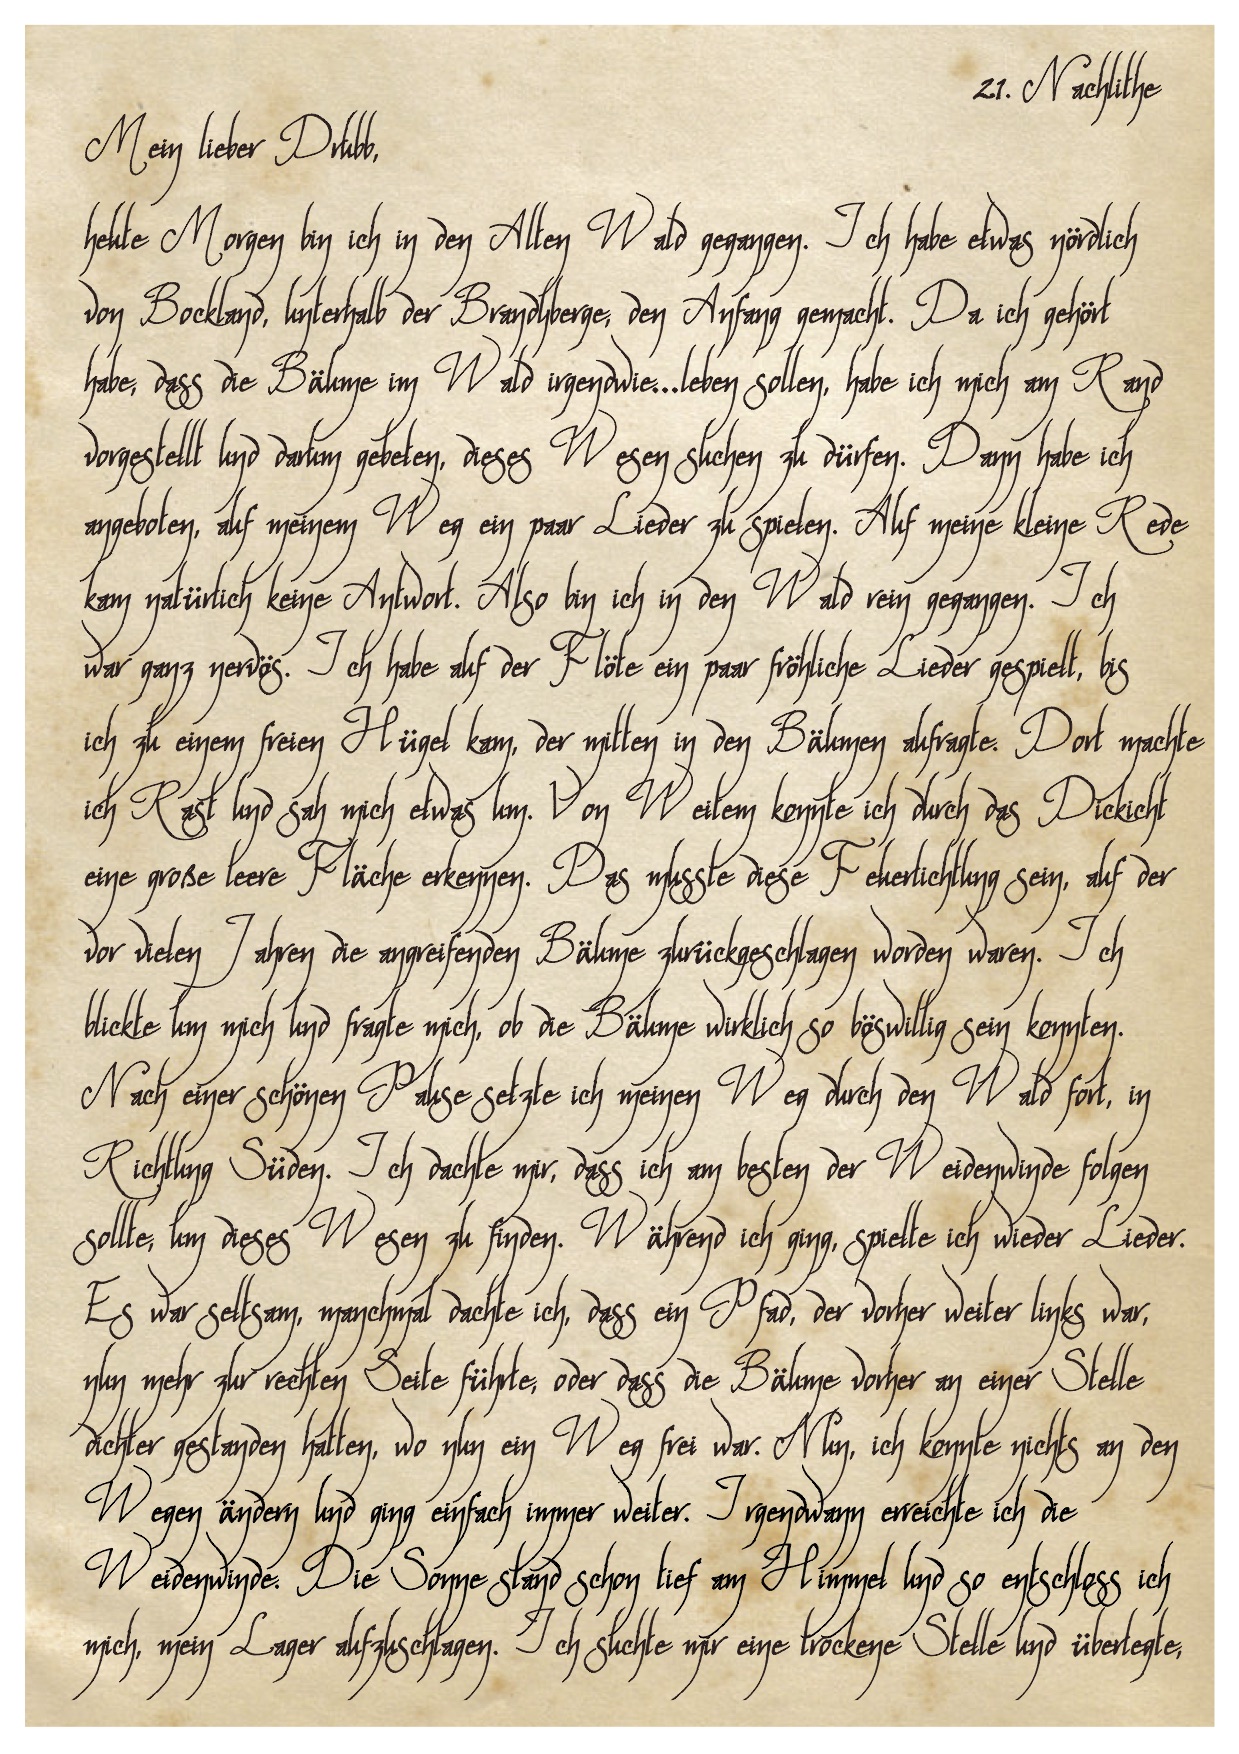 21. Nachlithe
Mein lieber Drubb,
heute Morgen bin ich in den Alten Wald gegangen. Ich habe etwas nördlich
von Bockland, unterhalb der Brandyberge, den Anfang gemacht. Da ich gehört
habe, dass die Bäume im Wald irgendwie...leben sollen, habe ich mich am Rand
vorgestellt und darum gebeten, dieses Wesen suchen zu dürfen. Dann habe ich
angeboten, auf meinem Weg ein paar Lieder zu spielen. Auf meine kleine Rede
kam natürlich keine Antwort. Also bin ich in den Wald rein gegangen. Ich
war ganz nervös. Ich habe auf der Flöte ein paar fröhliche Lieder gespielt, bis
ich zu einem freien Hügel kam, der mitten in den Bäumen aufragte. Dort machte
ich Rast und sah mich etwas um. Von Weitem konnte ich durch das Dickicht
eine große leere Fläche erkennen. Das musste diese Feuerlichtung sein, auf der
vor vielen Jahren die angreifenden Bäume zurückgeschlagen worden waren. Ich
blickte um mich und fragte mich, ob die Bäume wirklich so böswillig sein konnten.
Nach einer schönen Pause setzte ich meinen Weg durch den Wald fort, in
Richtung Süden. Ich dachte mir, dass ich am besten der Weidenwinde folgen
sollte, um dieses Wesen zu finden. Während ich ging, spielte ich wieder Lieder.
Es war seltsam, manchmal dachte ich, dass ein Pfad, der vorher weiter links war,
nun mehr zur rechten Seite führte, oder dass die Bäume vorher an einer Stelle
dichter gestanden hatten, wo nun ein Weg frei war. Nun, ich konnte nichts an den
Wegen ändern und ging einfach immer weiter. Irgendwann erreichte ich die
Weidenwinde. Die Sonne stand schon tief am Himmel und so entschloss ich
mich, mein Lager aufzuschlagen. Ich suchte mir eine trockene Stelle und überlegte,